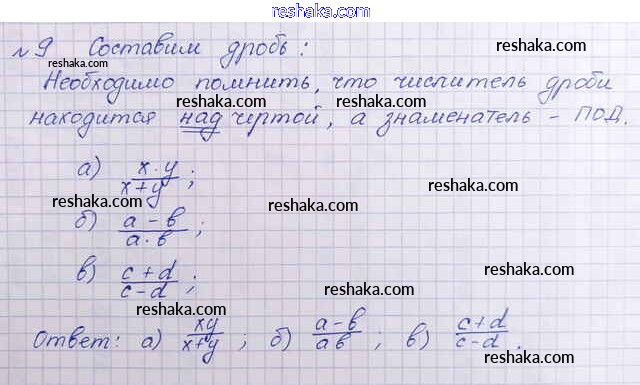 reshaka.com
№9 Составим дробь:
reshaka.com reshaka.com
Необходимо помнить, что числитель дроби
reshaka.com reshaka.com
находится над чертой, а знаменатель – ПОД.
reshaka.com
а) x·y/x+y;
reshaka.com reshaka.com
reshaka.com
б) a-b/a·b;
reshaka.com reshaka.com
в) c+d/c-d;
reshaka.com
ответ: а) xy/x+y; б) a-b/ab; в) c+d/c-d.
reshaka.com reshaka.com
reshaka.com